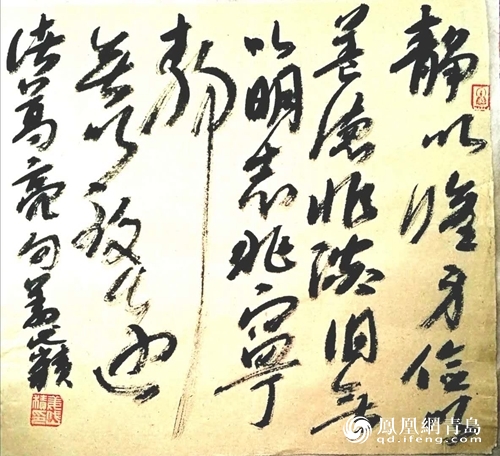 静以修身俭以
养德非淡泊无
以明志非寧
静
无以致远
诸葛亮句
鳳凰網青島
qd.ifeng.com